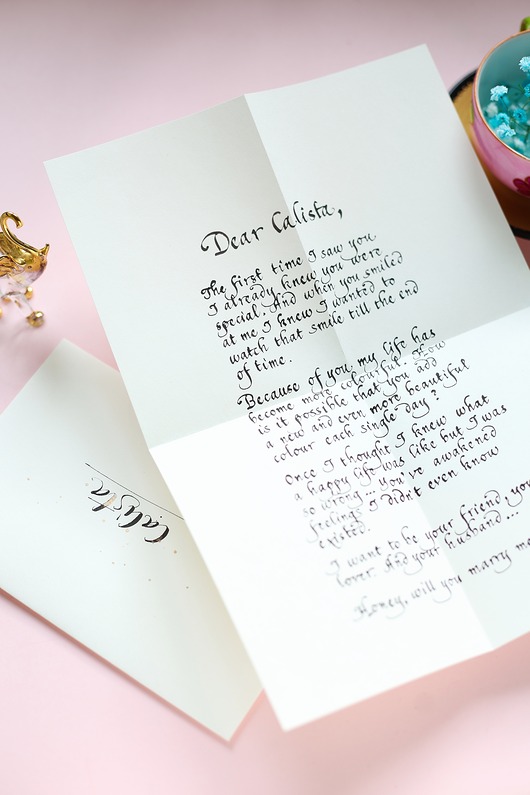 Dear Calista,
The first time I saw you
I already knew you were
special. And when you smiled
at me I knew I wanted to
watch that smile till the end
of time.
Because of you my life has
become more colourful. How
is it possible that you add
a new and even more beautiful
colour each single day?
Once I thought I knew what
a happy life was like but I was
so wrong... you've awakened
feelings I didn't even know
existed.
I want to be your friend, you
lover. And your husband...
Honey, will you marry me
Calista